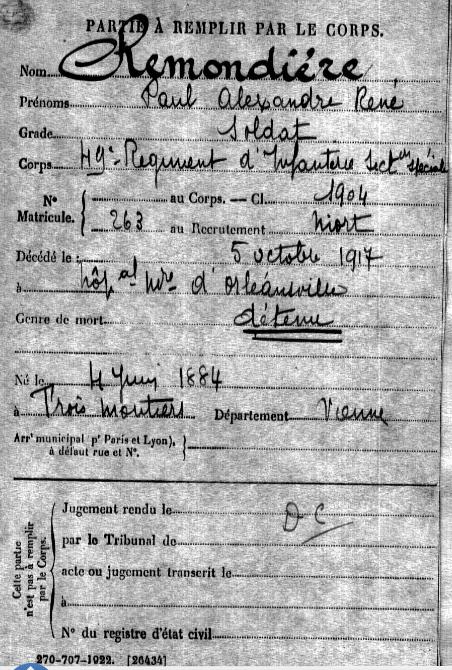 PARTIE À REMPLIR PAR LE CORPS.
Nom Remondiére
Prénoms Paul Alexandre René
Grade Soldat
Corps 49e Regiment d'Infanterie Secton spéciale
N° Matricule. { au Corps. — Cl. 1904
263 au Recrutement Niort
Décédé le : 5 octobre 1917
à hôpal mre d'Orléansville
Genre de mort détenu
Né le 4 Juin 1884
à Trois Moutiers Département Vienne
Arrt municipal (pr Paris et Lyon), à défaut rue et N°. }
Cette partie n'est pas à remplir par le Corps.
Jugement rendu le D C
par le Tribunal de
acte ou jugement transcrit le
à
N° du registre d'état civil
270-707-1922. [26434]